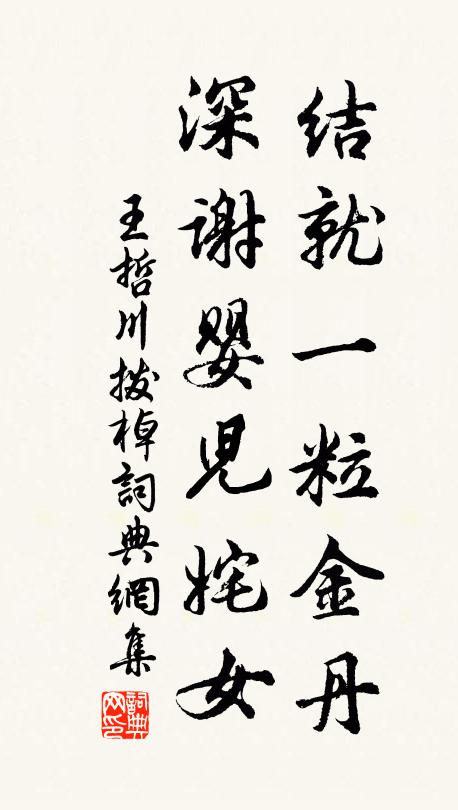 结就一粒金丹
深谢婴児姹女
王哲川拨棹詞典網集
詞典网印